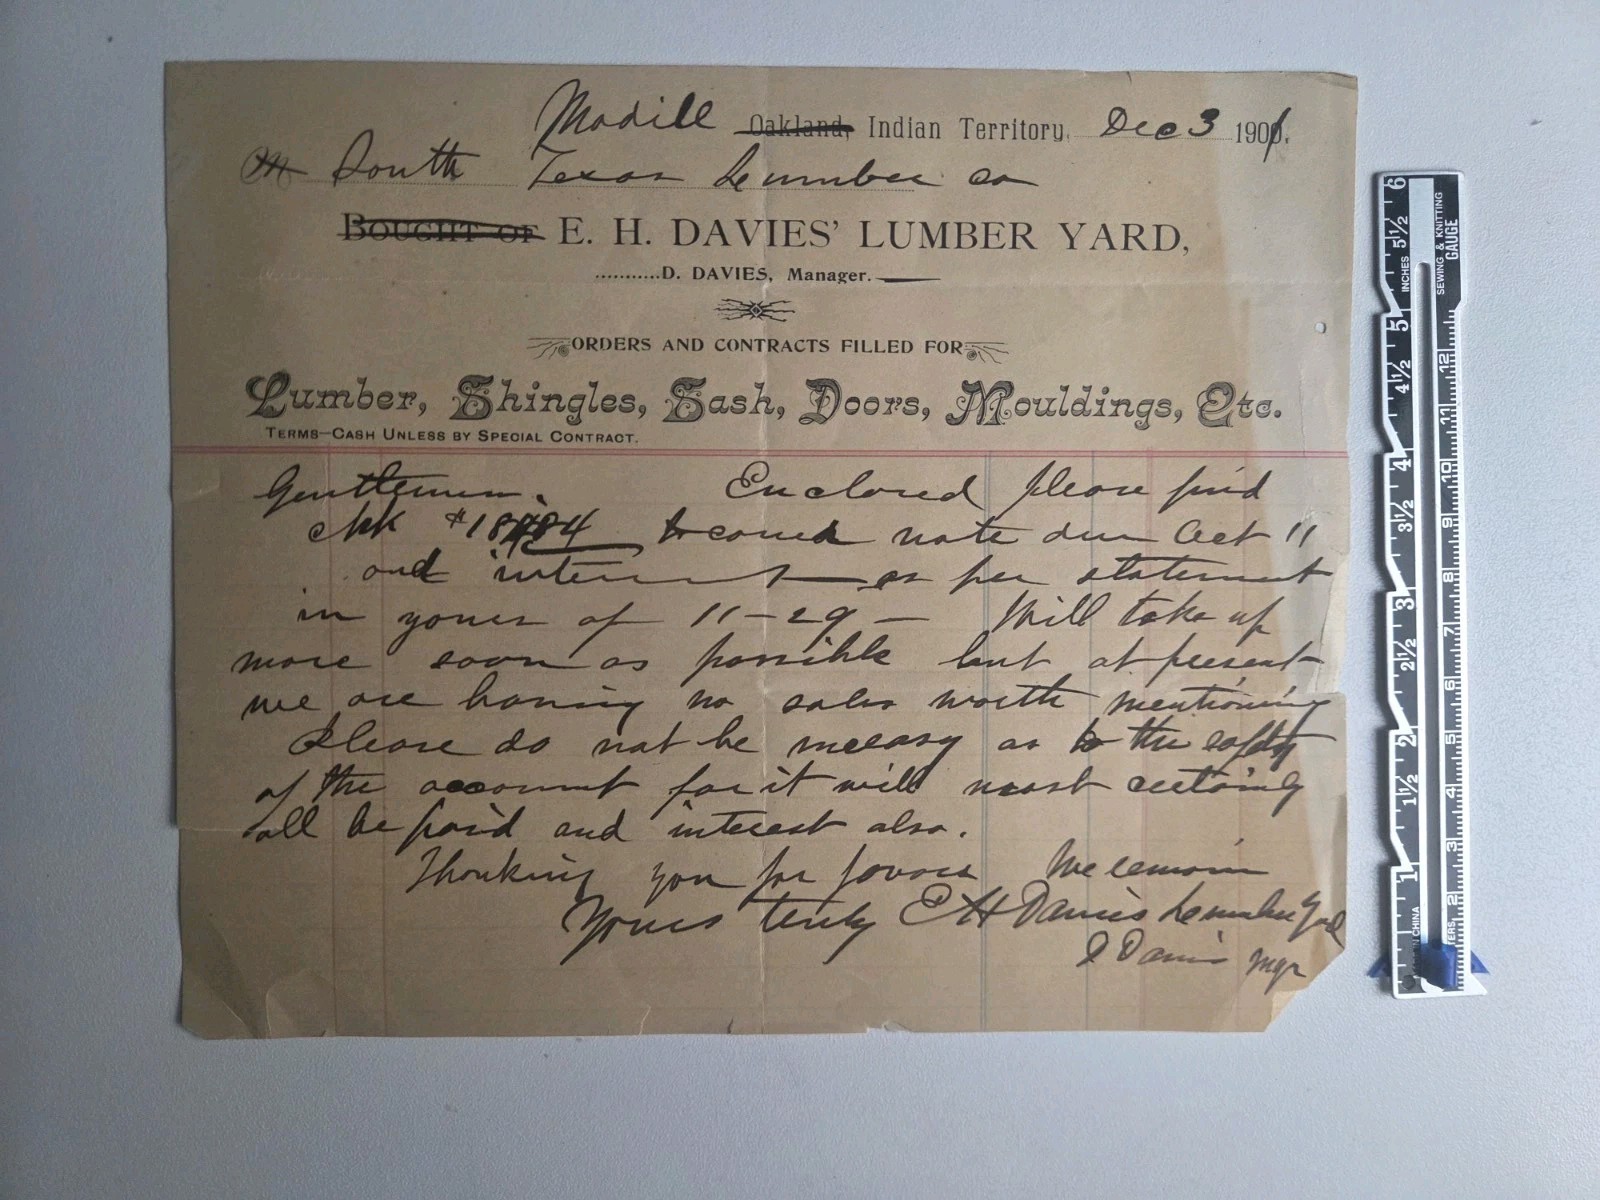 Madill Oakland, Indian Territory, Dec 3 1901.
M South Texas Lumber Co
BOUGHT OF E. H. DAVIES' LUMBER YARD,
...........D. DAVIES, Manager.
ORDERS AND CONTRACTS FILLED FOR
Lumber, Shingles, Sash, Doors, Mouldings, Etc.
TERMS—CASH UNLESS BY SPECIAL CONTRACT.
Gentlemen. Enclosed please find
chk to cover note due Oct 11
and interest as per statement
in yours of 11-29 - Will take up
more soon as possible but at present
we are having no sales worth mentioning
Please do not be uneasy as to the safty
of the account for it will most certainly
all be paid and interest also.
Thanking you for favors We remain
Yours truly E H Davies Lumber Yard
D Davies mgr
6
5 1/2
5
4 1/2
4
3 1/2
3
2 1/2
2
1 1/2
1
INCHES
SEWING & KNITTING
GAUGE
12
11
10
9
8
7
6
5
4
3
2
CHINA